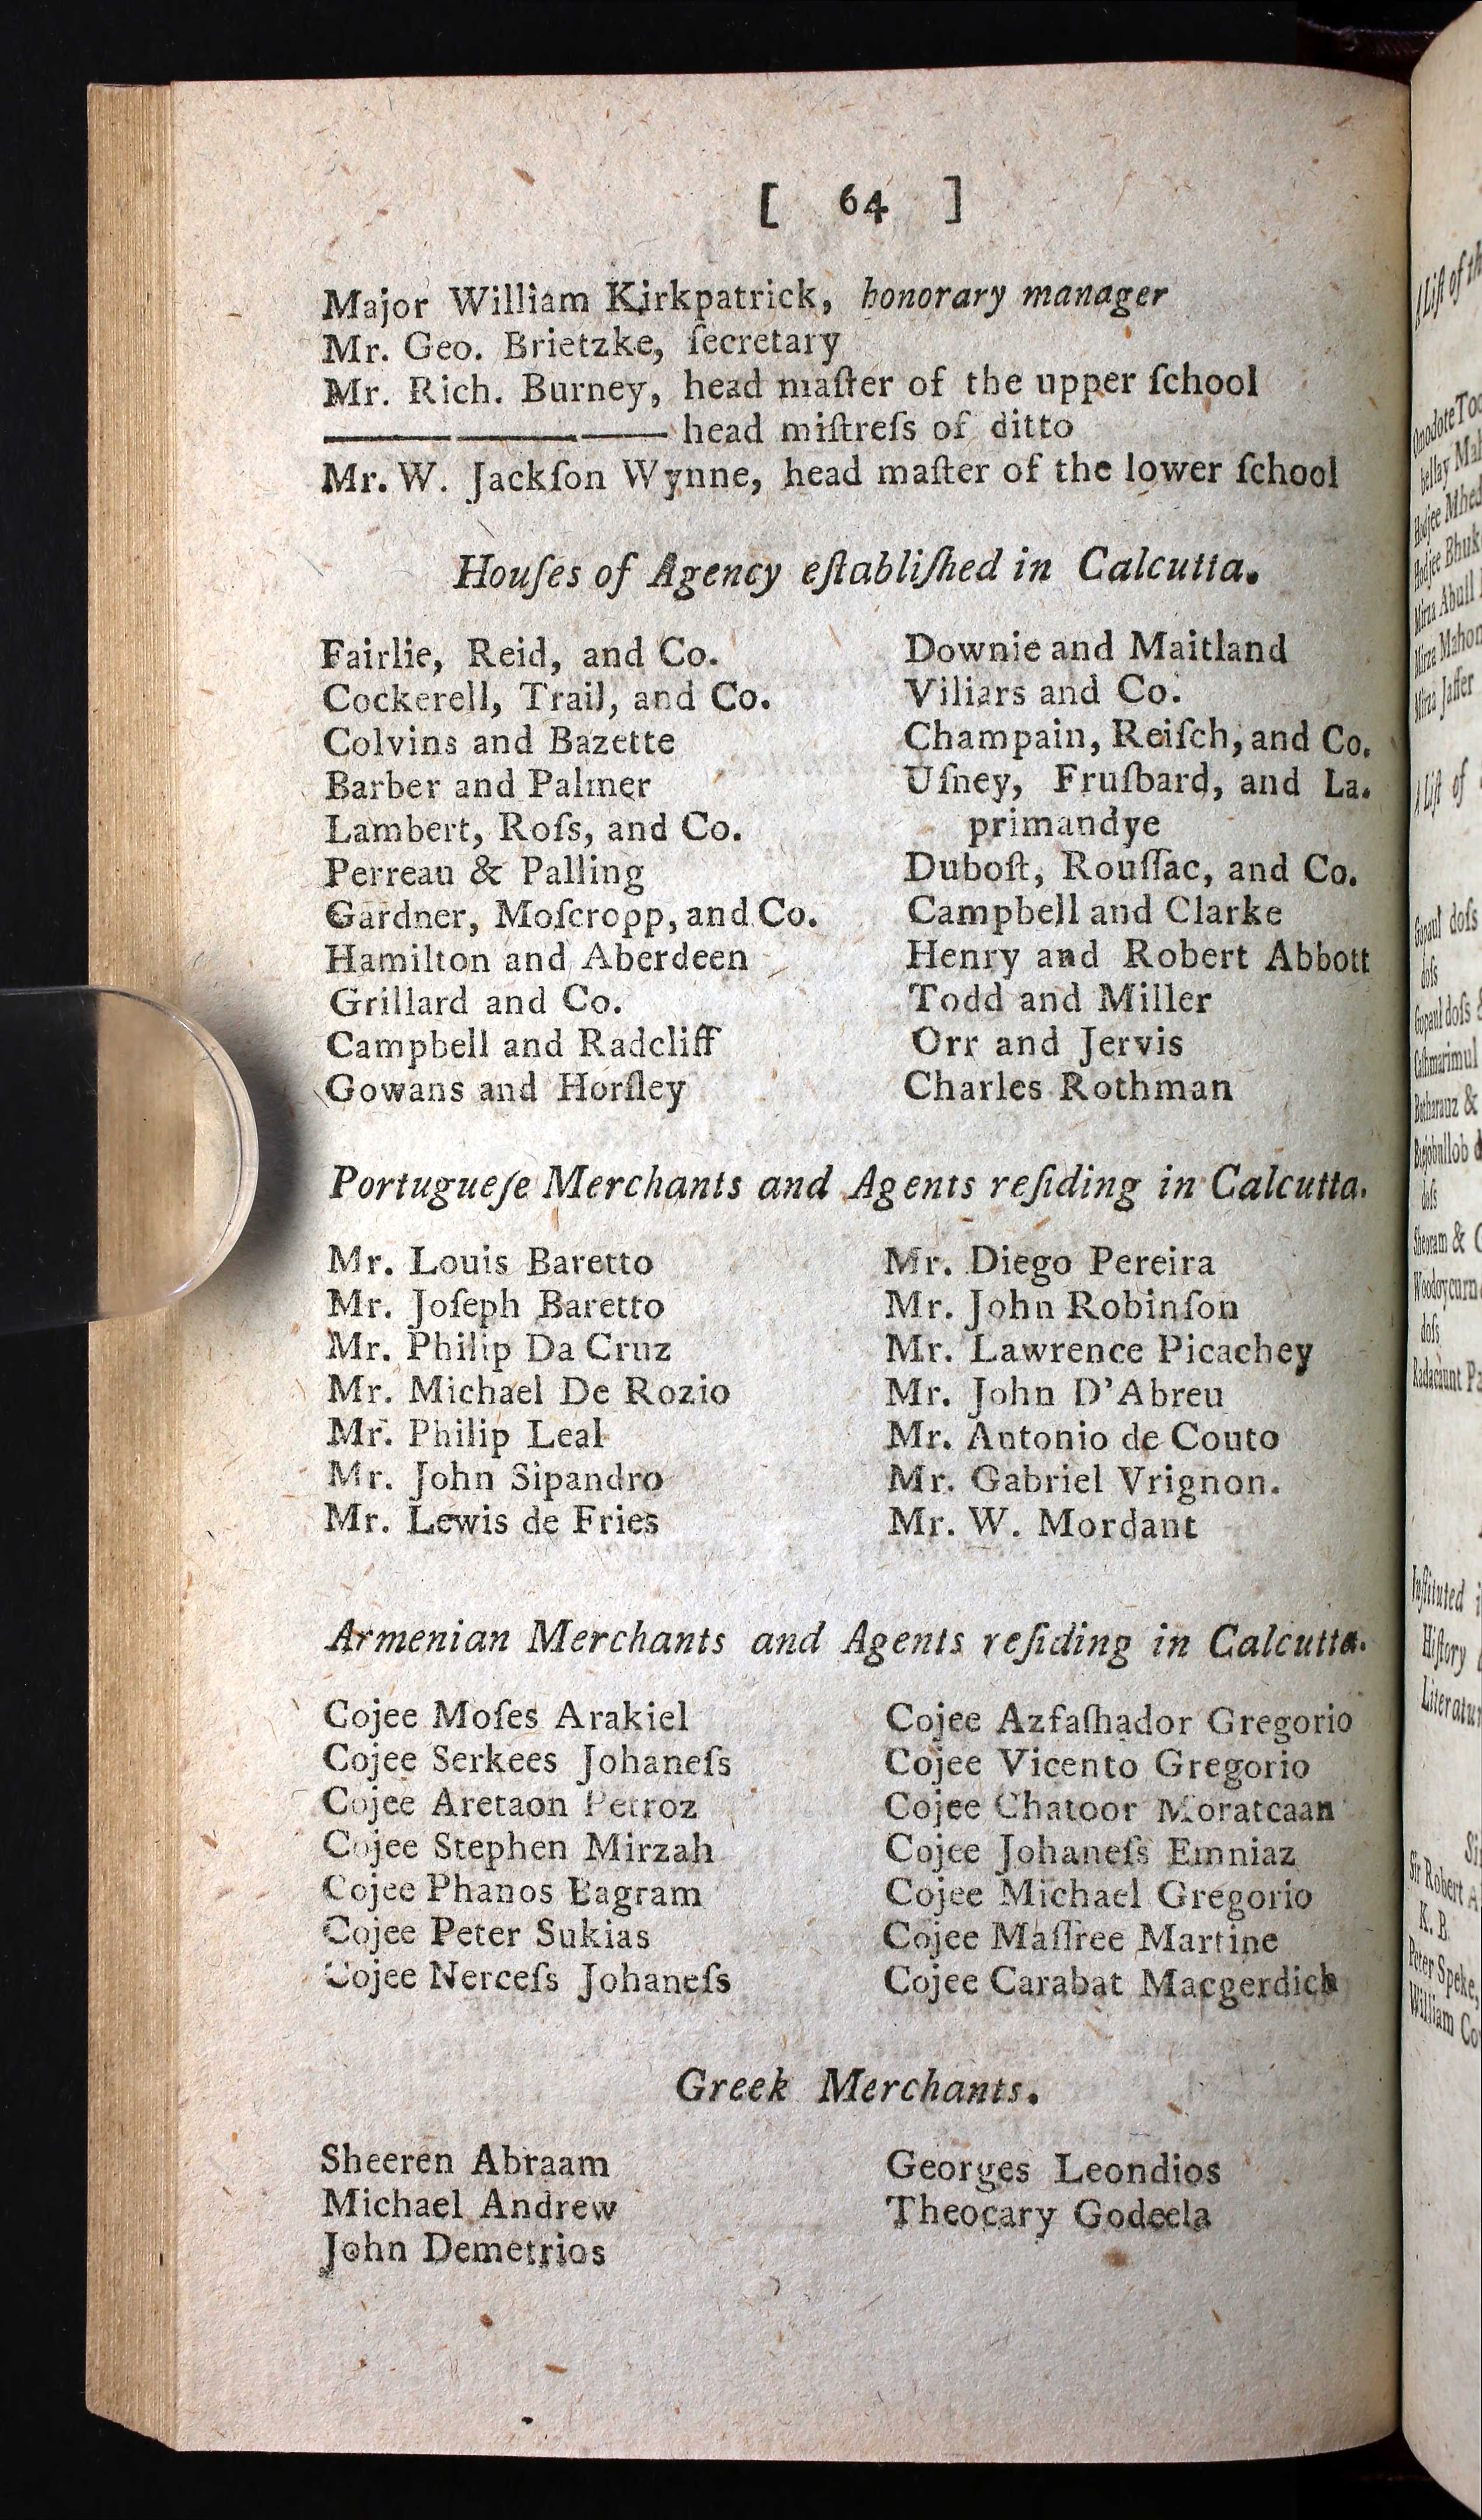 [ 64 ]
Major William Kirkpatrick, honorary manager
Mr. Geo. Brietzke, ſecretary
Mr. Rich. Burney, head maſter of the upper ſchool
——— head miſtreſs of ditto
Mr. W. Jackſon Wynne, head maſter of the lower ſchool
Houſes of Agency eſtabliſhed in Calcutta.
Fairlie, Reid, and Co.
Cockerell, Trail, and Co.
Colvins and Bazette
Barber and Palmer
Lambert, Roſs, and Co.
Perreau & Palling
Gardner, Moſcropp, and Co.
Hamilton and Aberdeen
Grillard and Co.
Campbell and Radcliff
Gowans and Horſley
Downie and Maitland
Viliars and Co.
Champain, Reiſch, and Co.
Uſney, Fruſbard, and La.
primandye
Duboſt, Rouſſac, and Co.
Campbell and Clarke
Henry and Robert Abbott
Todd and Miller
Orr and Jervis
Charles Rothman
Portugueſe Merchants and Agents reſiding in Calcutta.
Mr. Louis Baretto
Mr. Joſeph Baretto
Mr. Philip Da Cruz
Mr. Michael De Rozio
Mr. Philip Leal
Mr. John Sipandro
Mr. Lewis de Fries
Mr. Diego Pereira
Mr. John Robinſon
Mr. Lawrence Picachey
Mr. John D'Abreu
Mr. Antonio de Couto
Mr. Gabriel Vrignon.
Mr. W. Mordant
Armenian Merchants and Agents reſiding in Calcutta.
Cojee Moſes Arakiel
Cojee Serkees Johaneſs
Cojee Aretaon Petroz
Cojee Stephen Mirzah
Cojee Phanos Bagram
Cojee Peter Sukias
Cojee Nerceſs Johaneſs
Cojee Azfaſhador Gregorio
Cojee Vicento Gregorio
Cojee Chatoor Moratcaan
Cojee Johaneſs Emniaz
Cojee Michael Gregorio
Cojee Maſſree Martine
Cojee Carabat Macgerdich
Greek Merchants.
Sheeren Abraam
Michael Andrew
John Demetrios
Georges Leondios
Theocary Godeela